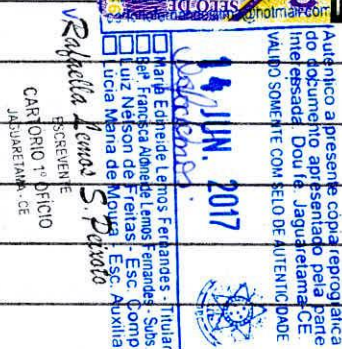 SELO DE
@hotmail.com
Autentico a presente cópia reprográfica
do documento apresentado pela parte
Interessada. Dou fé. Jaguaretama-CE.
VÁLIDO SOMENTE COM SELO DE AUTENTICIDADE
14 JUN. 2017
Maria Edineide Lemos Fernandes - Titular
Belª Francisca Aldineide Lemos Fernandes - Subs
Luiz Nelson de Freitas - Esc. Comp
Lúcia Maria de Moura - Esc. Auxilia
Rafaella Lemos S. Peixoto
ESCREVENTE
CARTÓRIO 1º OFÍCIO
JAGUARETAMA-CE